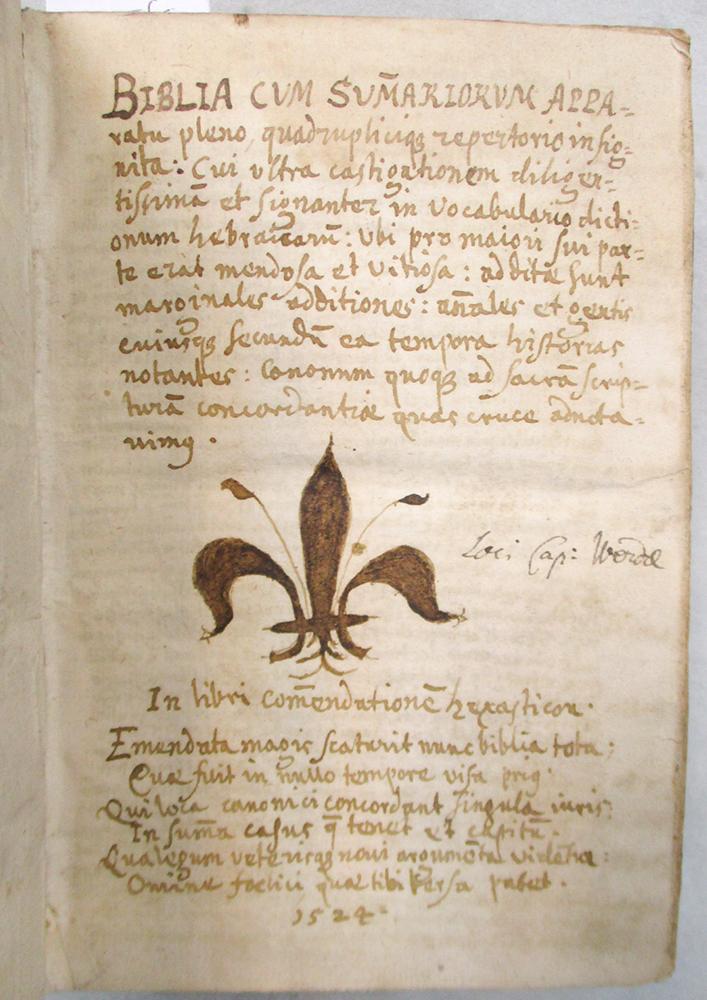 BIBLIA CUM SUM̃ARIORUM APPA-
ratu pleno, quadrupliciqȝ repertorio insig-
nita: Cui ultra castigationem diligen-
tissimā et signanter in vocabulario dicti-
onum hebraicarū: ubi pro maiori sui par-
te erat mendosa et vitiosa: additæ sunt
marginales additiones: añales et gentis
cuiusqȝ secundū ea tempora historias
notantes: Canonum quoqȝ ad sacrā scrip-
turā concordantiæ quas cruce adnota-
vimꝰ.
Loci Cap: Werdæ
In libri com̃endationē hexasticon.
Emendata magis scaturit nunc biblia tota:
Quæ fuit in nullo tempore visa priꝰ.
Qui loca canonici concordant singula iuris:
In sum̃a casus q̄ tenet et
Qua legum veterisqȝ novi argumenta
Omine foelici, quæ tibi versa patet.
1524.